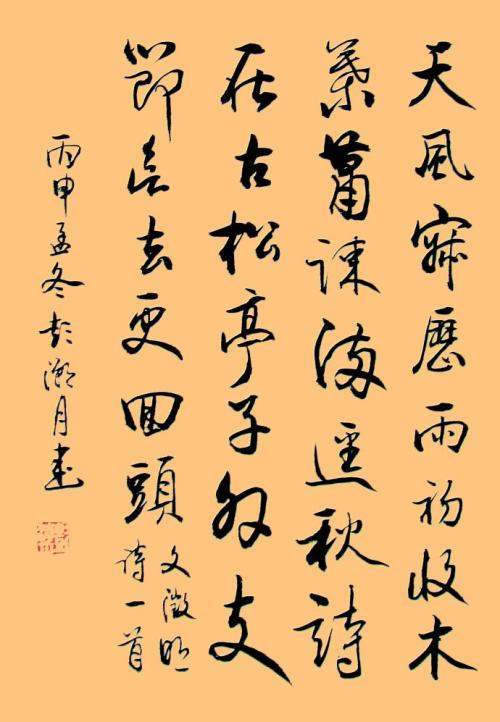 天風寂歷雨初收木
葉蕭疎滿逕秋詩
在古松亭子外支
節去更回頭
文徵明
詩一首
丙申孟冬彭月書